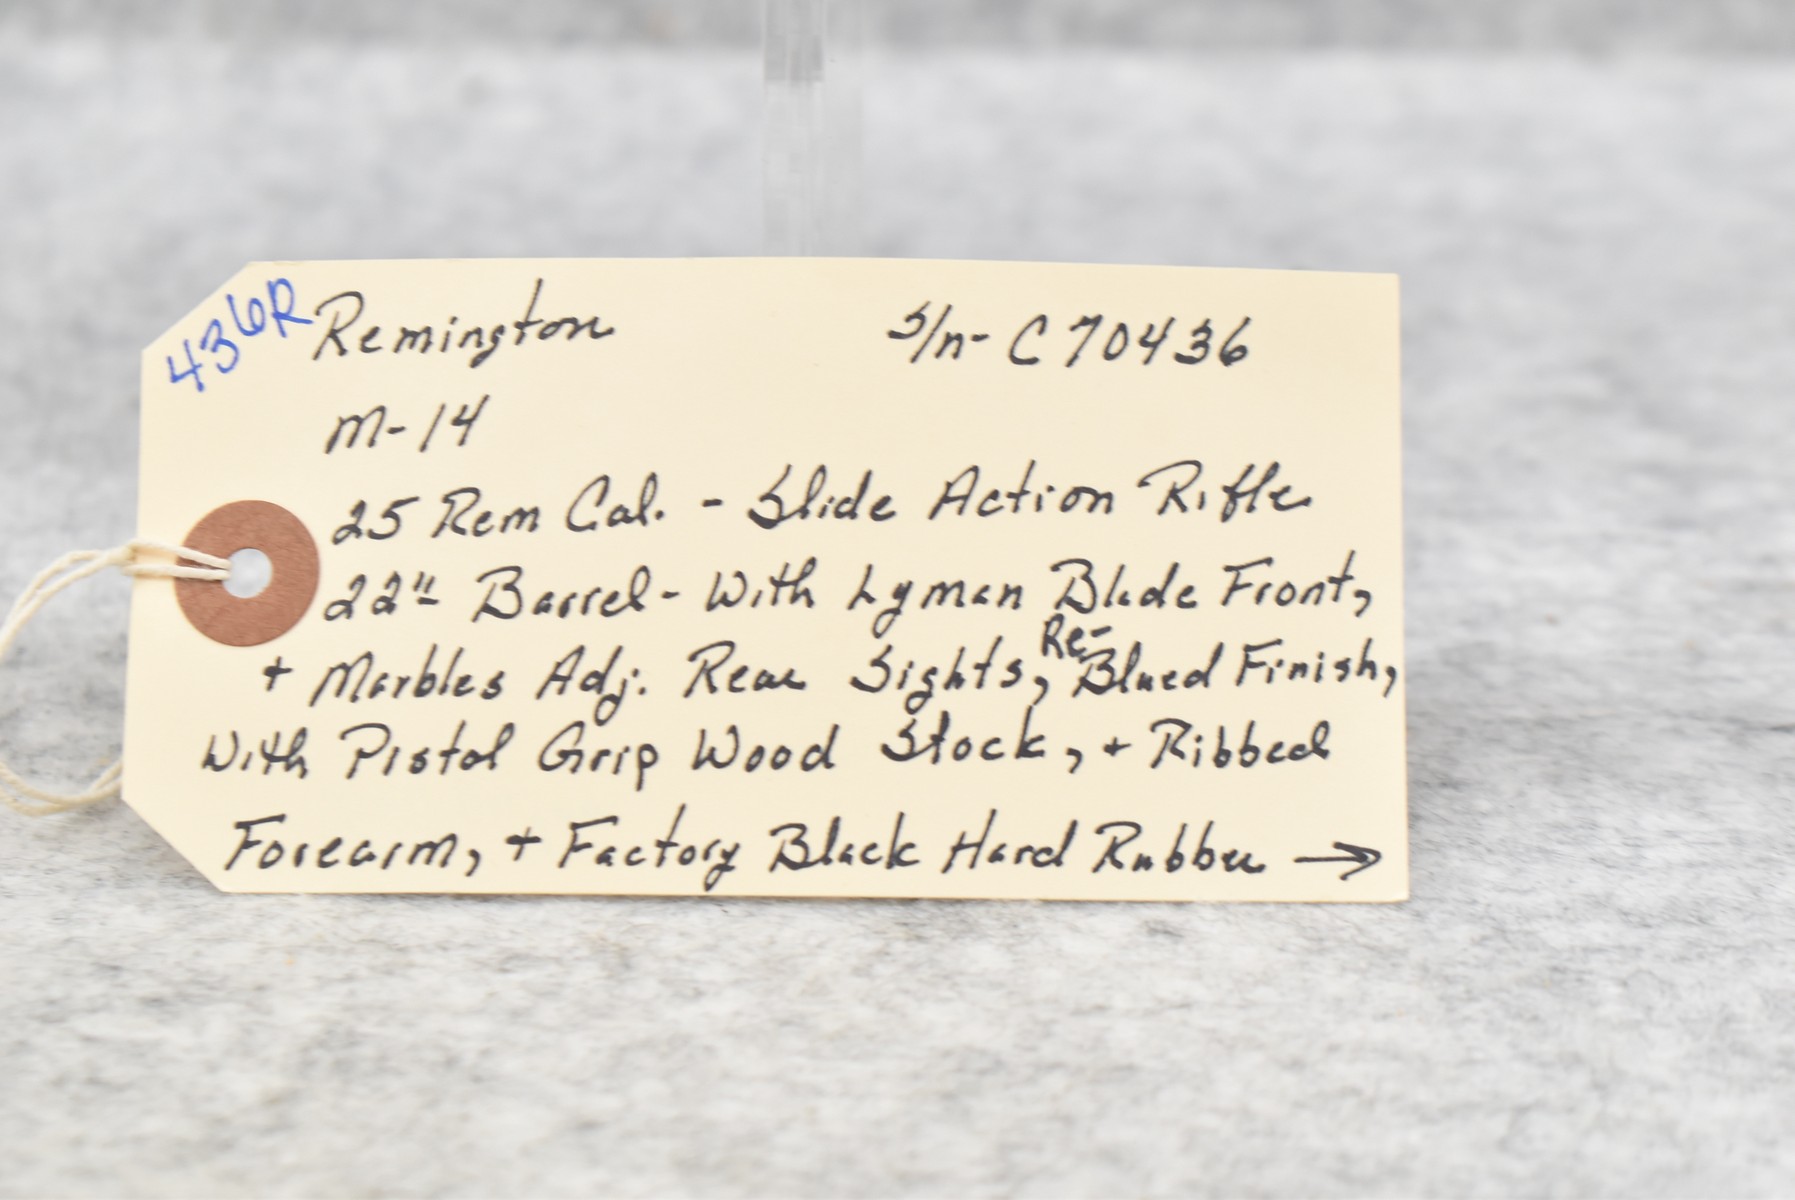 436R
Remington S/n- C70436
M-14
25 Rem Cal. - Slide Action Rifle
22"- Barrel- With Lyman Blade Front,
+ Marbles Adj. Rear Sights, Re-Blued Finish,
With Pistol Grip Wood Stock, + Ribbed
Forearm, + Factory Black Hard Rubber →